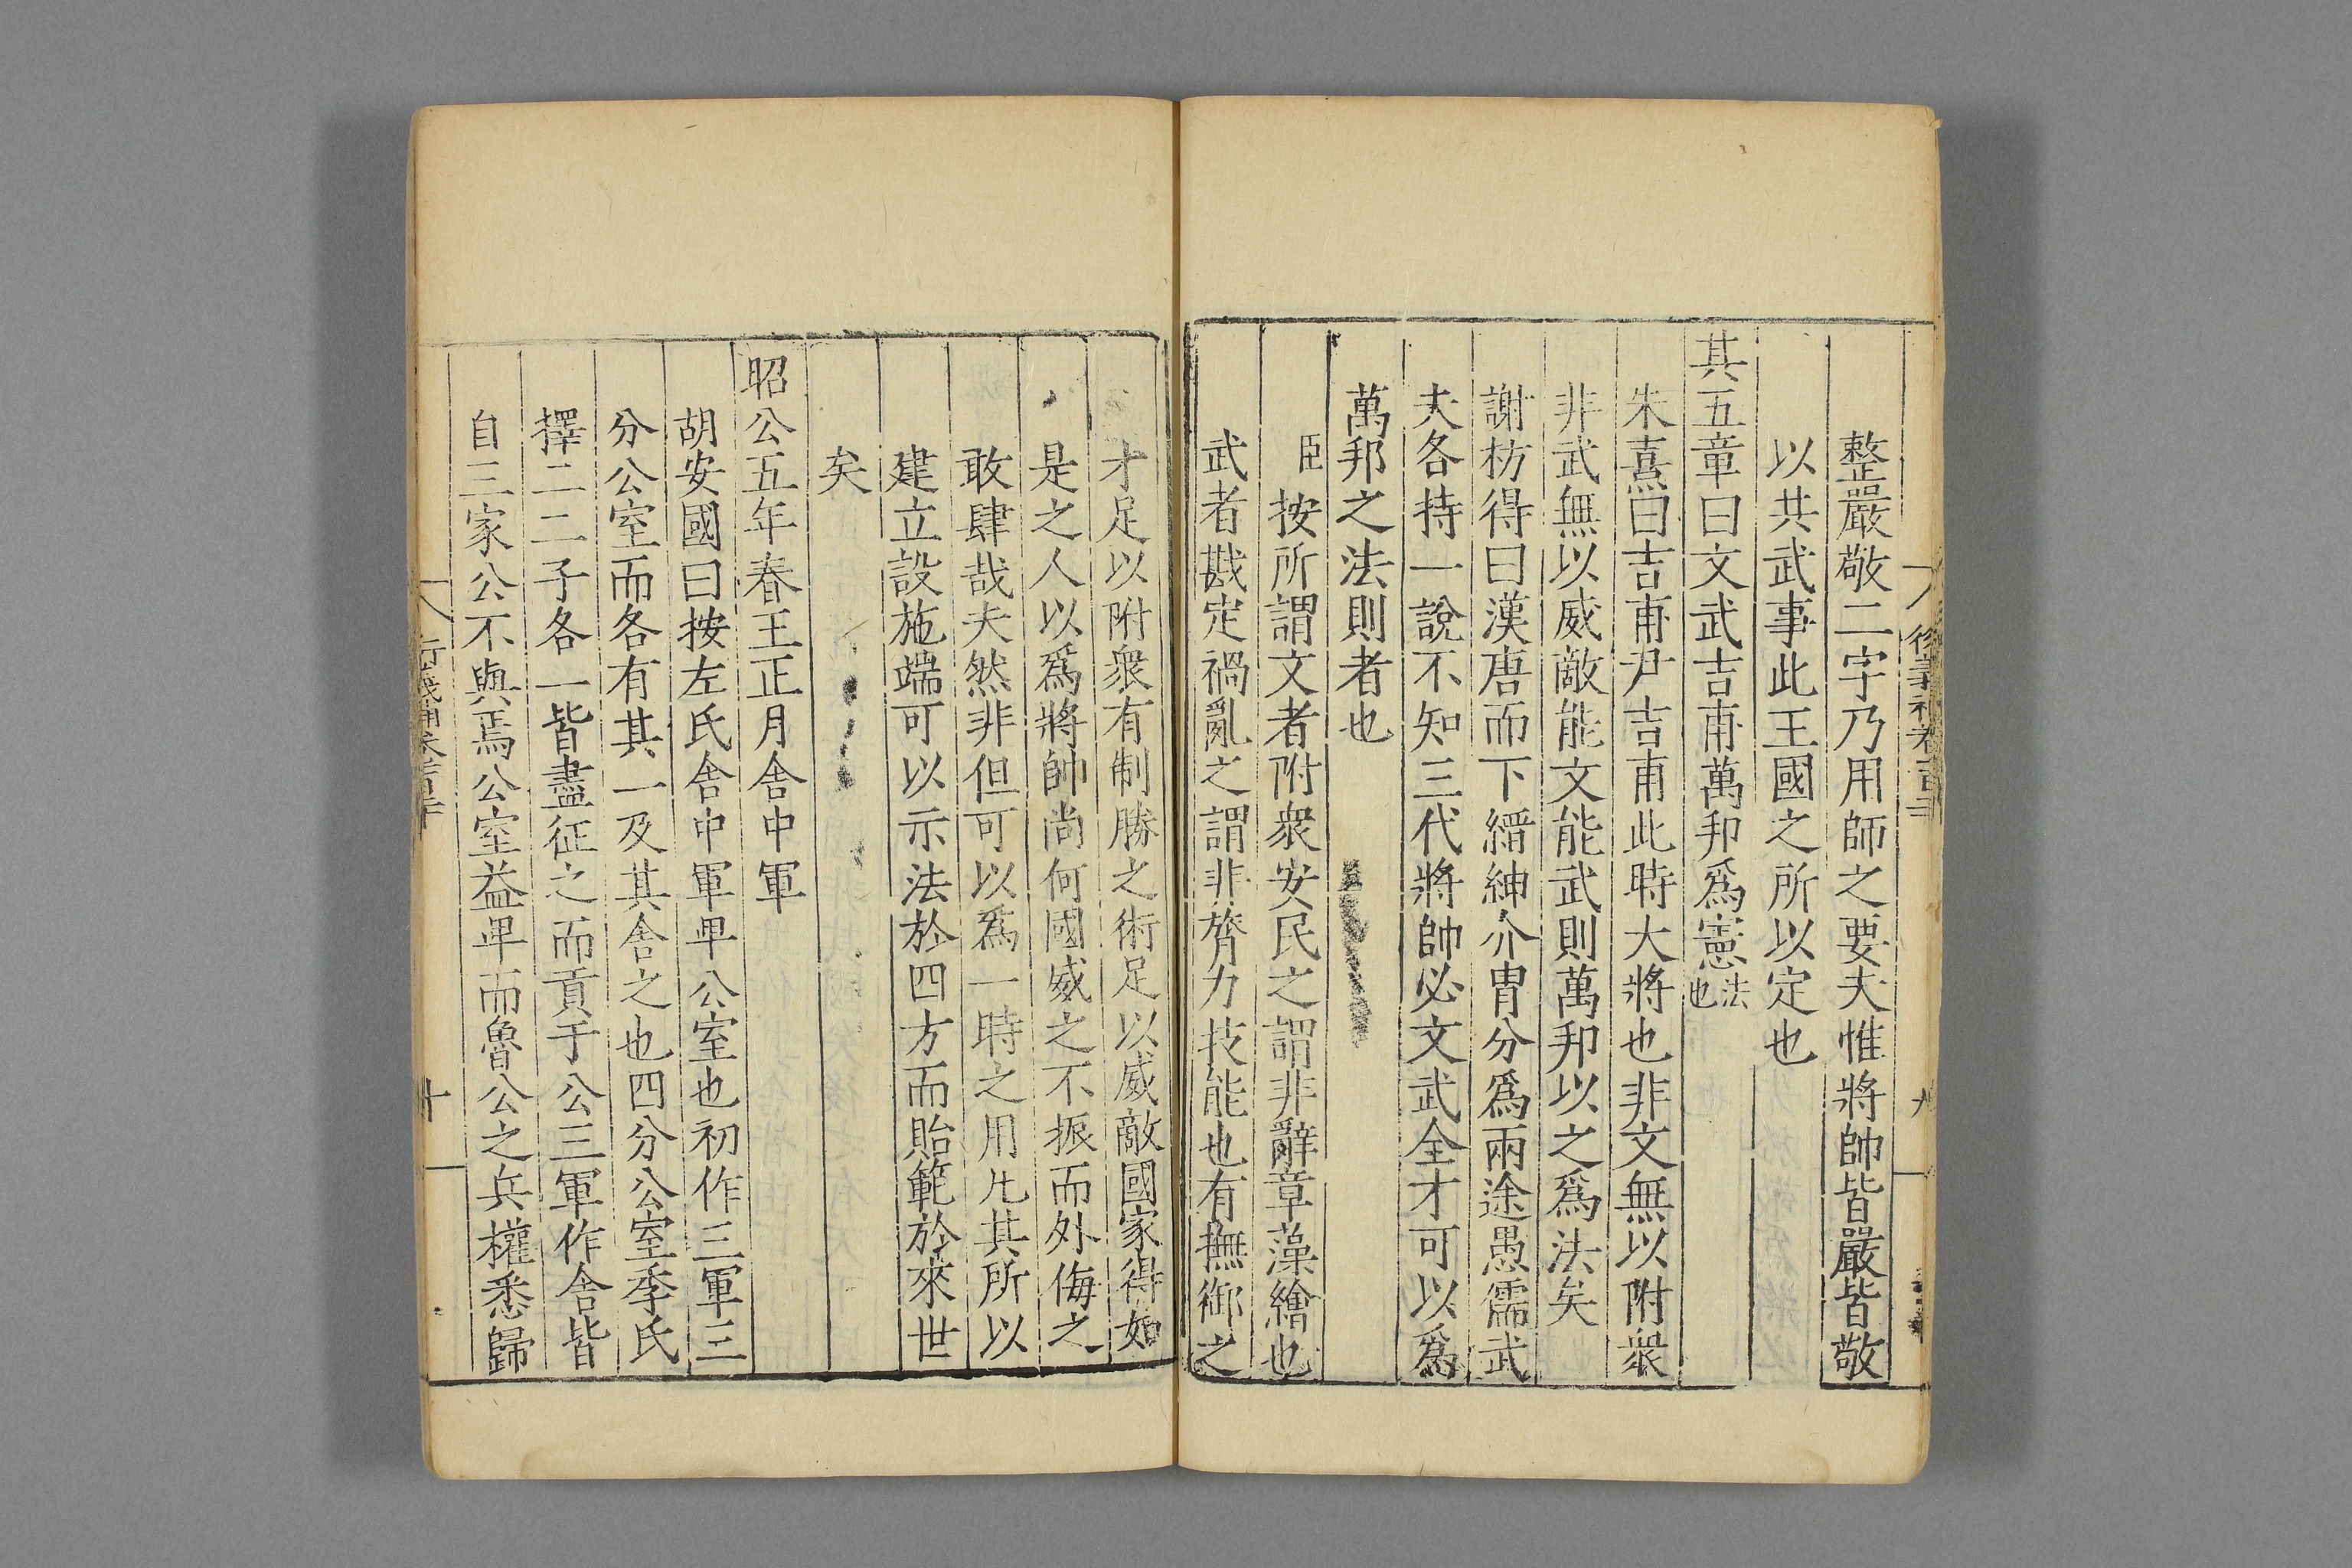 整嚴敬二字乃用師之要夫惟將帥皆嚴皆敬
以共武事此王國之所以定也
其五章曰文武吉甫萬邦爲憲法也
朱熹曰吉甫尹吉甫此時大將也非文無以附衆
非武無以威敵能文能武則萬邦以之爲法矣
謝枋得曰漢唐而下縉紳介冑分爲兩途愚儒武
夫各持一說不知三代將帥必文武全才可以爲
萬邦之法則者也
臣按所謂文者附衆安民之謂非辭章藻繪也
武者戡定禍亂之謂非膂力技能也有撫御之
才足以附衆有制勝之術足以威敵國家得如
是之人以爲將帥尚何國威之不振而外侮之
敢肆哉夫然非但可以爲一時之用凡其所以
建立設施端可以示法於四方而貽範於來世
矣
昭公五年春王正月舍中軍
胡安國曰按左氏舍中軍卑公室也初作三軍三
分公室而各有其一及其舍之也四分公室季氏
擇二二子各一皆盡征之而貢于公三軍作舍皆
自三家公不與焉公室益卑而魯公之兵權悉歸
十